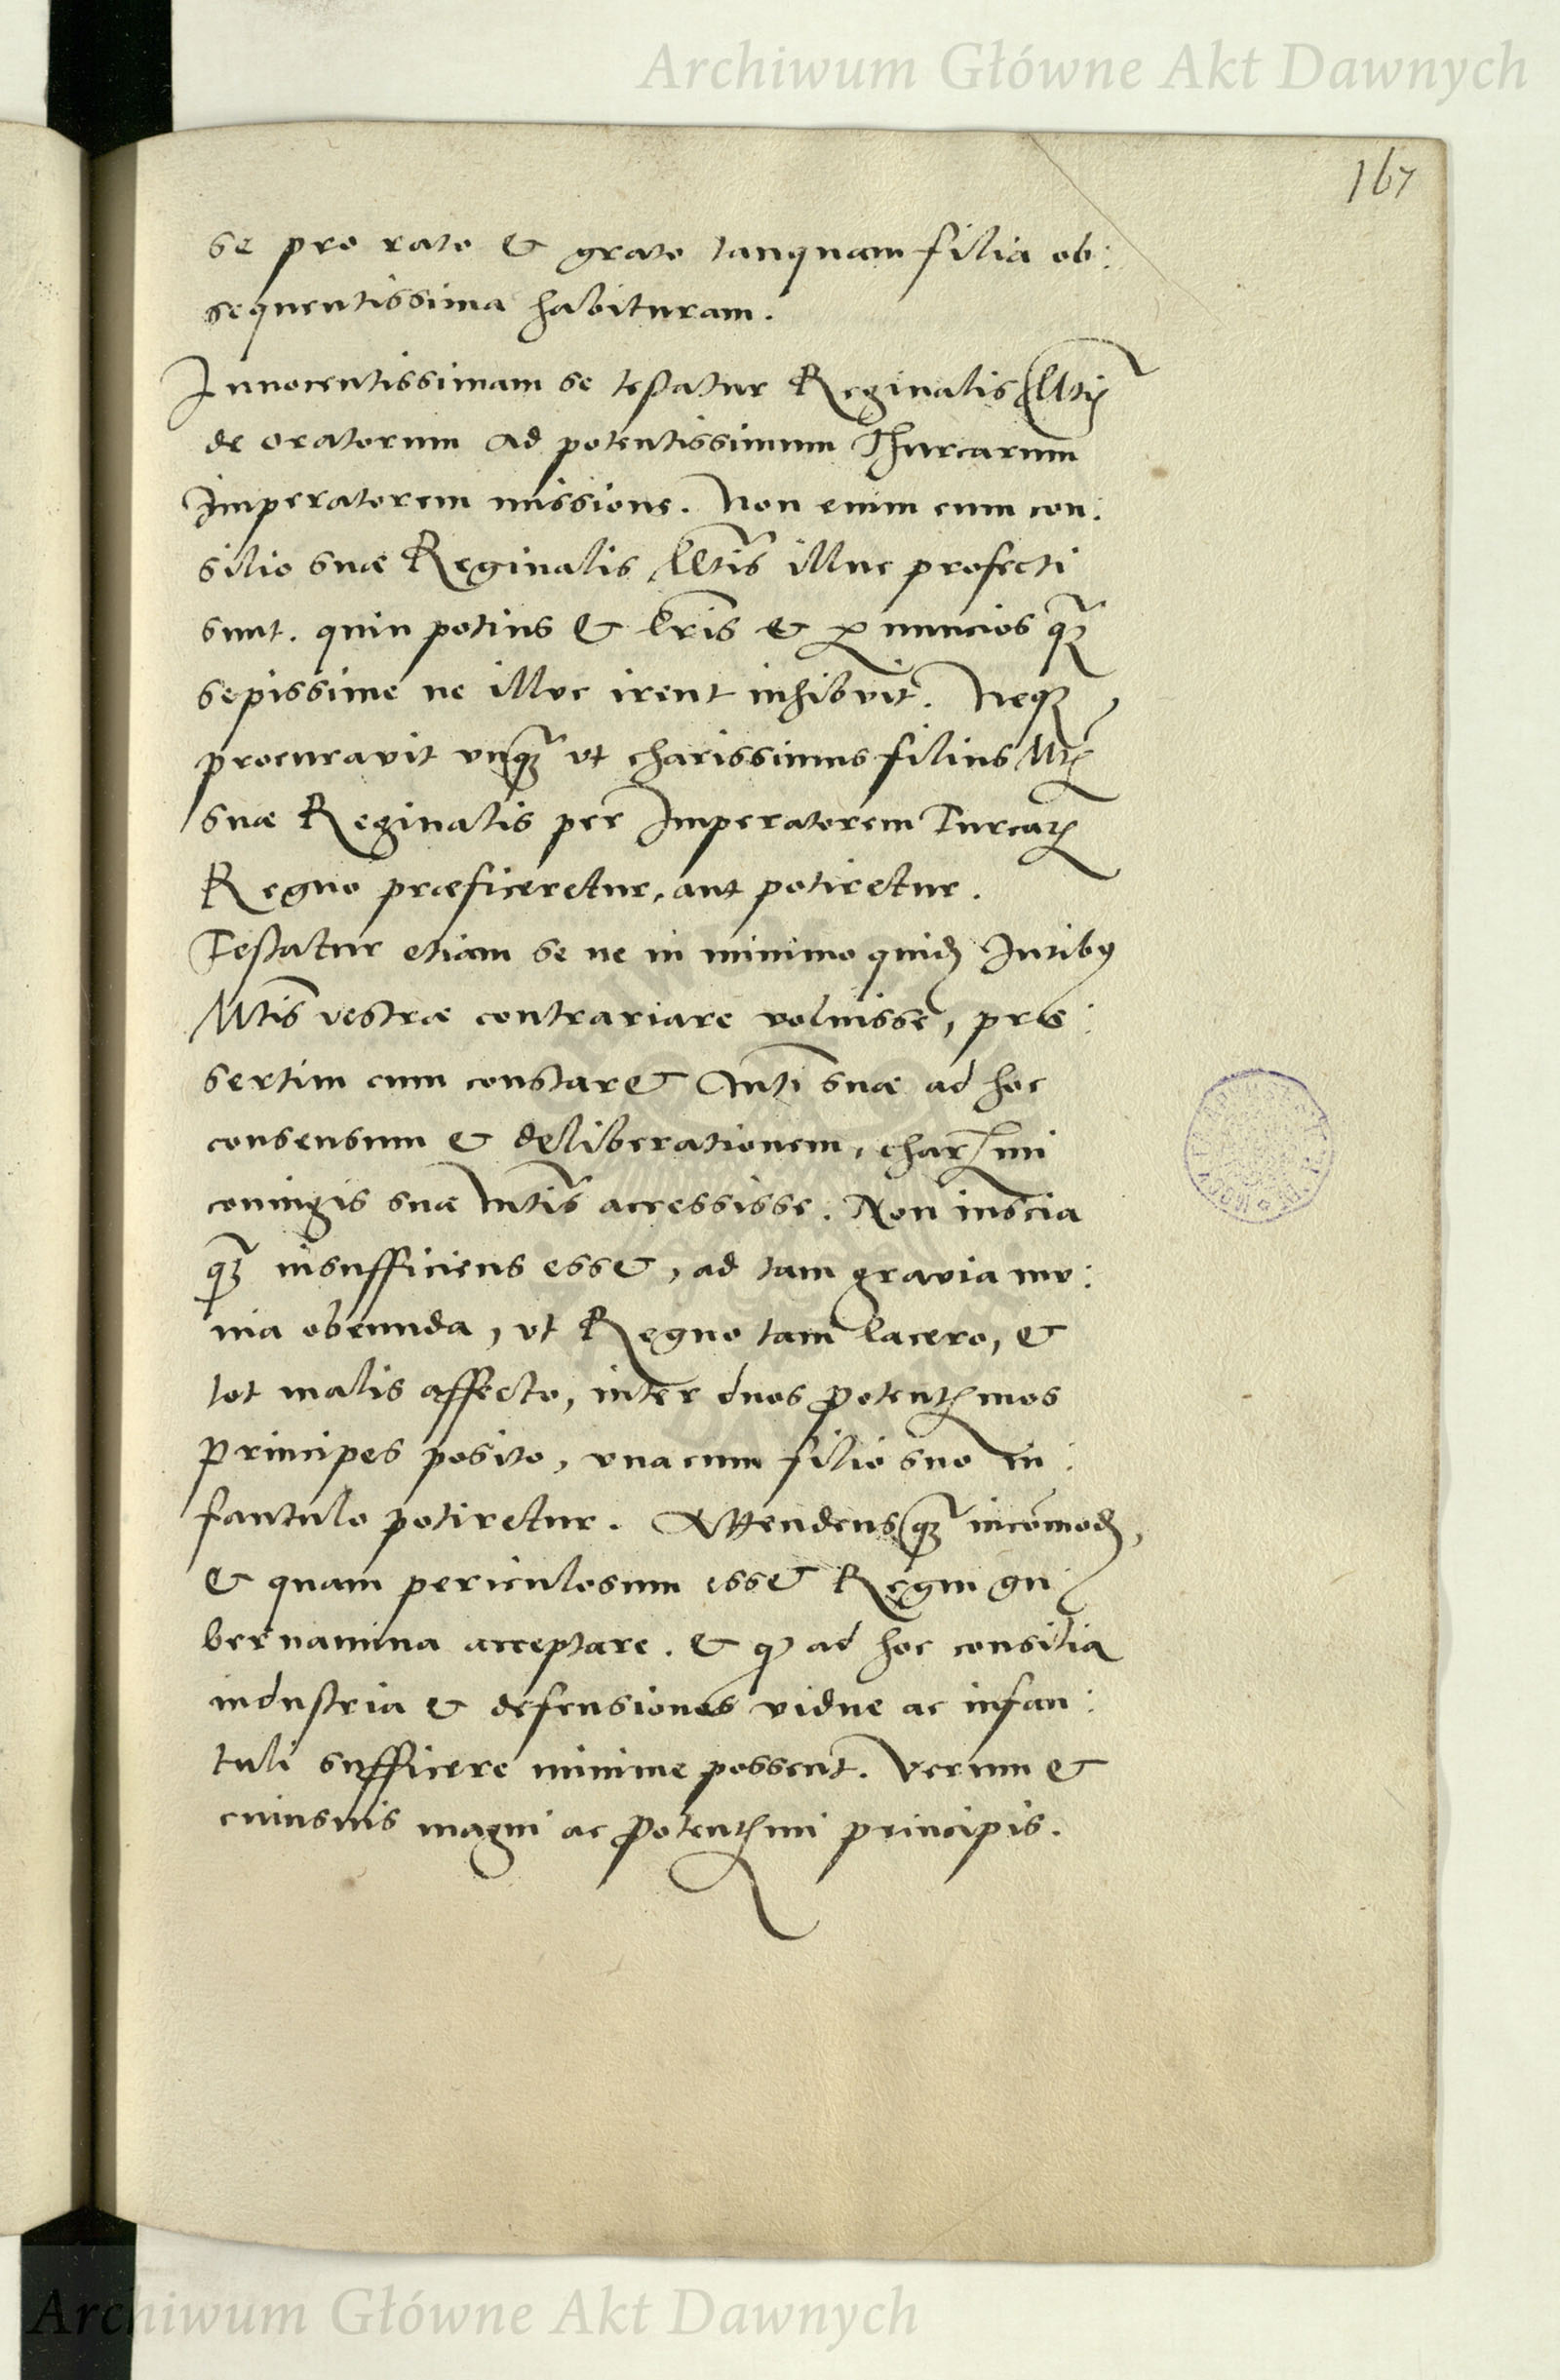 Archiwum Główne Akt Dawnych
167
se pro rato & grato tanquam filia ob:
sequentissima habituram.
Innocentissimam se testatur Reginalis Mtis
de oratorum ad potentissimum Thurcarum
Imperatorem missione. Non enim cum con:
silio suæ Reginalis Mtis illuc profecti
sunt. quin potius & lris & p nuncios quam
sepissime ne illuc irent inhibuit. Neque
procuravit unquam vt charissimus filius Mtis
suæ Reginalis per Imperatorem Turcarum
Regno præficeretur, aut potiretur.
Testatur etiam se ne in minimo quidem Iuribus
Mtis vestræ contrariare voluisse, præ:
sertim cum constaret Mti suæ ad hoc
consensum & deliberationem, charmi
coniugis suæ Mtis accessisse. Non inscia
quam insufficiens esset, ad tam gravia mu:
nia obeunda, vt Regno tam lacero, &
tot malis affecto, inter duos potentmos
principes posito, vna cum filio suo in:
fantulo potiretur. Attendens quam incomodum,
& quam periculosum esset Regni gu:
bernamina acceptare. & quod ad hoc consilia
industria & defensiones vidue ac infan:
tuli sufficere minime possent. Verum &
cuiusuis magni ac potentmi principis.
Archiwum Główne Akt Dawnych